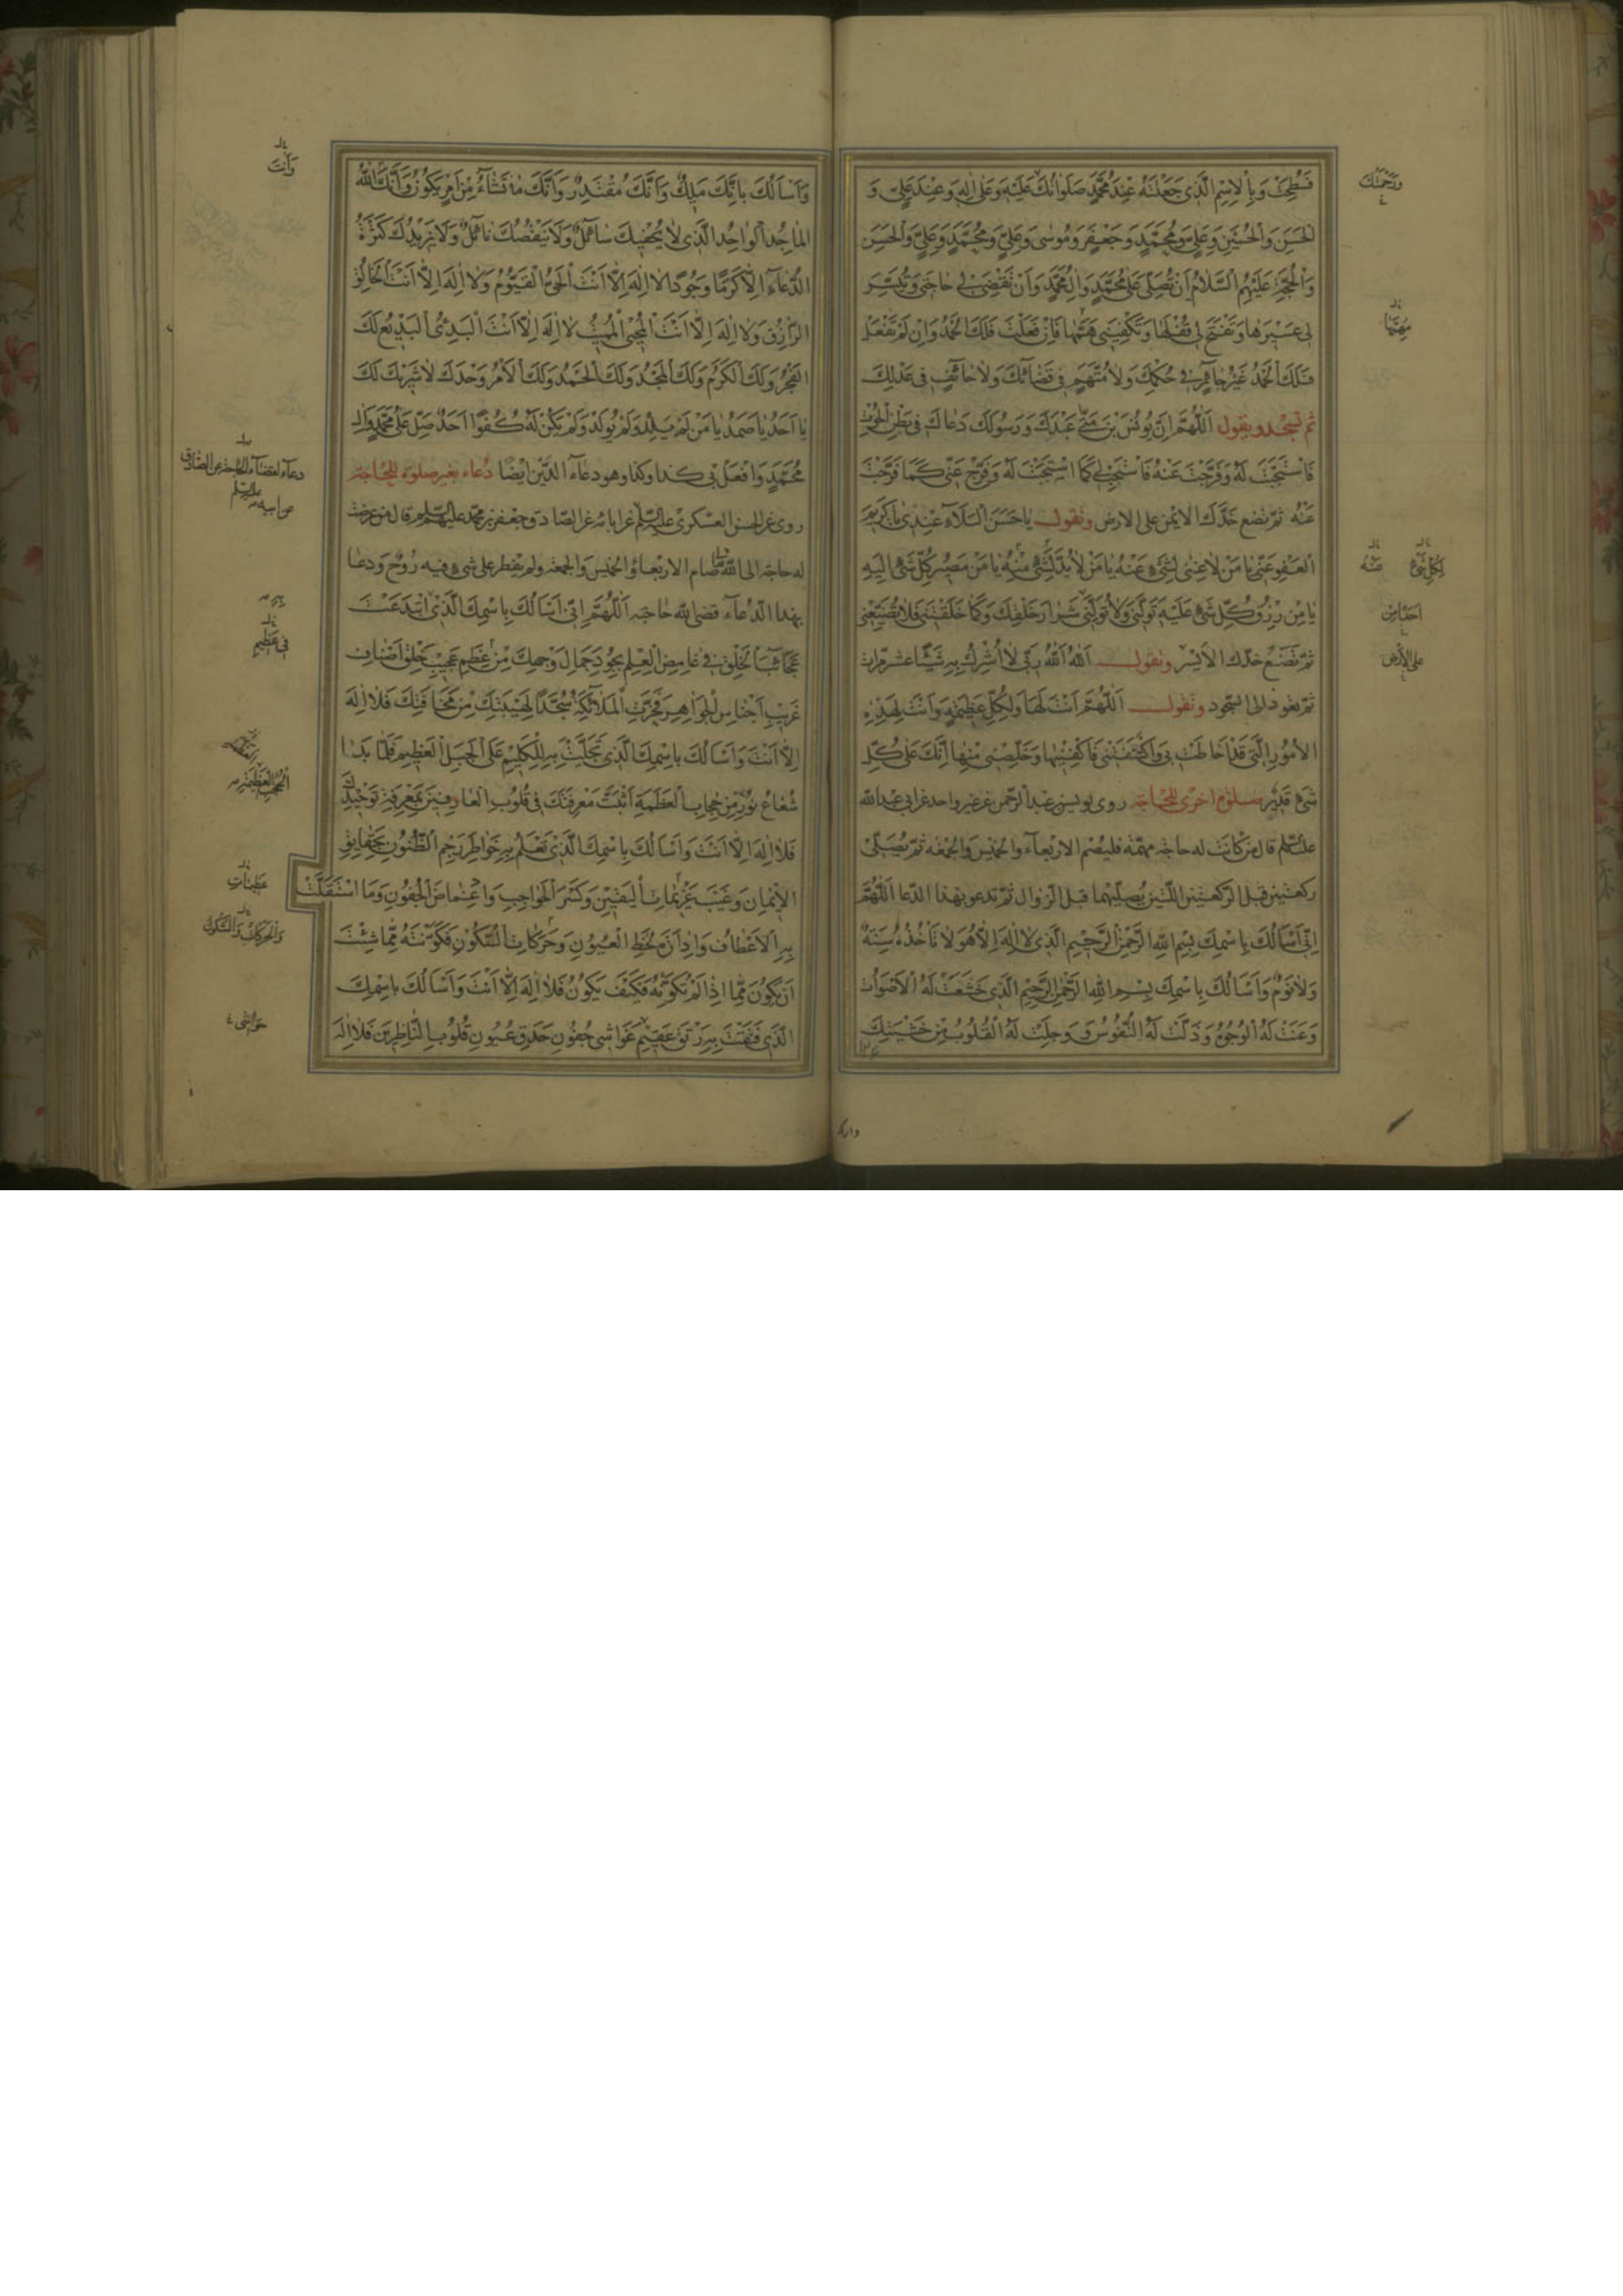 فَسُطِحَتْ وَبِالاِسْمِ الَّذِي جَعَلْتَهُ عِنْدَ مُحَمَّدٍ صَلَوَاتُكَ عَلَيْهِ وَعَلى الِهِ وَعِنْدَ عَلِيٍّ وَ
الْحَسَنِ وَالْحُسَيْنِ وَعَلِيٍّ وَمُحَمَّدٍ وَجَعْفَرٍ وَمُوسى وَعَلِيٍّ وَمُحَمَّدٍ وَعَلِيٍّ وَالْحَسَنِ
وَالْحُجَّةِ عَلَيْهِمُ السَّلامُ اَنْ تُصَلِّيَ عَلى مُحَمَّدٍ وَالِ مُحَمَّدٍ وَاَنْ تَقْضِيَ لِي حاجَتِي وَتُيَسِّرَ
لِي عَسِيرَها وَتَفْتَحَ لِي قُفْلَها وَتَكْفِيَنِي هَمَّها فَاِنْ فَعَلْتَ فَلَكَ الْحَمْدُ وَاِنْ لَمْ تَفْعَلْ
فَلَكَ الْحَمْدُ غَيْرَ جائِرٍ فِي حُكْمِكَ وَلا مُتَّهَمٍ فِي قَضائِكَ وَلا حائِفٍ فِي عَدْلِكَ
ثم تسجد ويقول اَللّهُمَّ اِنَّ يُونُسَ بْنَ مَتّى عَبْدَكَ وَرَسُولَكَ دَعاكَ فِي بَطْنِ الْحُوتِ
فَاسْتَجَبْتَ لَهُ وَفَرَّجْتَ عَنْهُ فَاسْتَجِبْ لِي كَمَا اسْتَجَبْتَ لَهُ وَفَرِّجْ عَنِّي كَما فَرَّجْتَ
عَنْهُ ثم تضع خدّك الايمن على الارض وتقول يا حَسَنَ الْبَلاءِ عِنْدِي يا كَرِيمَ
الْعَفْوِ عَنِّي يا مَنْ لا غِنى لِشَيْءٍ عَنْهُ يا مَنْ لا بُدَّ لِشَيْءٍ مِنْهُ يا مَنْ مَصِيرُ كُلِّ شَيْءٍ اِلَيْهِ
يا مَنْ رِزْقُ كُلِّ شَيْءٍ عَلَيْهِ تَوَلَّنِي وَلا تُوَلِّنِي شِرارَ خَلْقِكَ وَكَما خَلَقْتَنِي فَلا تُضَيِّعْنِي
ثم تضع خدّك الأيسر وتقول اَللهُ اَللهُ رَبِّي لا اُشْرِكُ بِهِ شَيْئًا عشر مرات
ثم تعود الى السجود وتقول اَللّهُمَّ اَنْتَ لَها وَلِكُلِّ عَظِيمَةٍ وَاَنْتَ لِهذِهِ
الاُمُورِ الَّتِي قَدْ اَحاطَتْ بِي وَاكْتَنَفَتْنِي فَاكْفِنِيها وَخَلِّصْنِي مِنْها اِنَّكَ عَلى كُلِّ
شَيْءٍ قَدِيرٌ صلوة اخرى للحاجة روى يونس بن عبد الرحمن عن غير واحد عن ابي عبد الله
عليه السلم قال من كانت له حاجة مهمة فليصم الاربعاء والخميس والجمعة ثم يصلى
ركعتين قبل الركعتين اللتين يصليهما قبل الزوال ثم تدعو بهذا الدعا اَللّهُمَّ
اِنِّي اَسْاَلُكَ بِاسْمِكَ بِسْمِ اللهِ الرَّحْمنِ الرَّحِيمِ الَّذِي لا اِلهَ اِلاّ هُوَ لا تَاْخُذُهُ سِنَةٌ
وَلا نَوْمٌ وَاَسْاَلُكَ بِاسْمِكَ بِسْمِ اللهِ الرَّحْمنِ الرَّحِيمِ الَّذِي خَشَعَتْ لَهُ الاَصْواتُ
وَعَنَتْ لَهُ الْوُجُوهُ وَذَلَّتْ لَهُ النُّفُوسُ وَوَجِلَتْ لَهُ الْقُلُوبُ مِنْ خَشْيَتِكَ
وَرَحْمَتُكَ
مُهِمَّها
لِكُلِّ شَيْءٍ
عَنْهُ
اَحَدًا مِنْ
على الأرض
وَاَسْاَلُكَ بِاَنَّكَ مَلِيكٌ وَاَنَّكَ مُقْتَدِرٌ وَاَنَّكَ ما تَشاءُ مِنْ اَمْرٍ يَكُونُ وَاَنَّكَ اللهُ
الْماجِدُ الْواحِدُ الَّذِي لا يُحْفِيكَ سائِلٌ وَلا يَنْقُصُكَ نائِلٌ وَلا يَزِيدُكَ كَثْرَةُ
الدُّعاءِ اِلاّ كَرَمًا وَجُودًا لا اِلهَ اِلاّ اَنْتَ الْحَيُّ الْقَيُّومُ وَلا اِلهَ اِلاّ اَنْتَ الْخالِقُ
الرّازِقُ وَلا اِلهَ اِلاّ اَنْتَ الْمُحْيِي الْمُمِيتُ لا اِلهَ اِلاّ اَنْتَ الْبَدِئُ الْبَدِيعُ لَكَ
الْفَخْرُ وَلَكَ الْكَرَمُ وَلَكَ الْمَجْدُ وَلَكَ الْحَمْدُ وَلَكَ الْاَمْرُ وَحْدَكَ لا شَرِيكَ لَكَ
يا اَحَدُ يا صَمَدُ يا مَنْ لَمْ يَلِدْ وَلَمْ يُولَدْ وَلَمْ يَكُنْ لَهُ كُفُوًا اَحَدٌ صَلِّ عَلى مُحَمَّدٍ وَالِ
مُحَمَّدٍ وَافْعَلْ بِي كذا وكذا وهو دعاء الدَّيْن ايضا دُعاء بغير صلوة للحاجة
روى عن الحسن العسكري عليه السلم عن ابائه عن الصادق جعفر بن محمد عليهم السلم قال من عرضت
له حاجة الى الله تعالى صام الاربعاء والخميس والجمعة ولم يفطر على شيء فيه رُوح ودعا
بهذا الدعاء قضى الله حاجته اَللّهُمَّ اِنِّي اَسْاَلُكَ بِاسْمِكَ الَّذِي ابْتَدَعْتَ
عَجائِبَ الْخَلْقِ فِي غامِضِ الْعِلْمِ بِجُودِ جَمالِ وَجْهِكَ مِنْ عَظِيمِ عَجِيبِ خَلْقِ اَصْنافِ
غَرِيبِ اَجْناسِ الْجَواهِرِ فَخَرَّتِ الْمَلائِكَةُ سُجَّدًا لِهَيْبَتِكَ مِنْ مَخافَتِكَ فَلا اِلهَ
اِلاّ اَنْتَ وَاَسْاَلُكَ بِاسْمِكَ الَّذِي تَجَلَّيْتَ بِهِ لِلْكَلِيمِ عَلَى الْجَبَلِ الْعَظِيمِ فَلَمّا بَدا
شُعاعُ نُورٍ مِنْ حِجابِ الْعَظَمَةِ اَثْبَتَّ مَعْرِفَتَكَ فِي قُلُوبِ الْعارِفِينَ بِمَعْرِفَةِ تَوْحِيدِكَ
فَلا اِلهَ اِلاّ اَنْتَ وَاَسْاَلُكَ بِاسْمِكَ الَّذِي تَعْلَمُ بِهِ خَواطِرَ رَجْمِ الظُّنُونِ بِحَقائِقِ
الاِيمانِ وَغَيْبَ عَزِيماتِ الْيَقِينِ وَكَسْرَ الْحَواجِبِ وَاِغْماضَ الْجُفُونِ وَمَا اسْتَقَلَّتْ
بِهِ الاَعْطافُ وَاِدارَةَ لَحْظِ الْعُيُونِ وَحَرَكاتِ السُّكُونِ فَكَوَّنْتَهُ مِمّا شِئْتَ
اَنْ يَكُونَ مِمّا اِذا لَمْ تُكَوِّنْهُ فَكَيْفَ يَكُونُ فَلا اِلهَ اِلاّ اَنْتَ وَاَسْاَلُكَ بِاسْمِكَ
الَّذِي فَتَقْتَ بِهِ رَتْقَ عَقِيمِ غَواشِي جُفُونِ حَدَقِ عُيُونِ قُلُوبِ النّاظِرِينَ فَلا اِلهَ
وَاَنْتَ
دعاء لقضاء الحاجة عن الصادق
عليه السلم
فِي عَظِيمِ
عَظِيماتِ
وَالْحَرَكاتِ وَالسُّكُونِ
حَواشِي